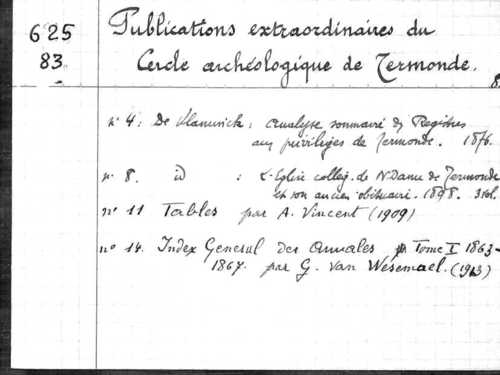 625
83
Publications extraordinaires du
Cercle archéologique de Termonde.
8
n° 4: De Vlaminck: Analyse sommaire des Registres
aux privilèges de Termonde. 1876.
n° 8. id : L'Eglise colleg. de N. Dame de Termonde
et son ancien obituaire. 1898.
n° 11 Tables par A. Vincent (1909)
n° 14. Index General des Annales Tome I 1863-
1867. par G. Van Wesemael. (1913)